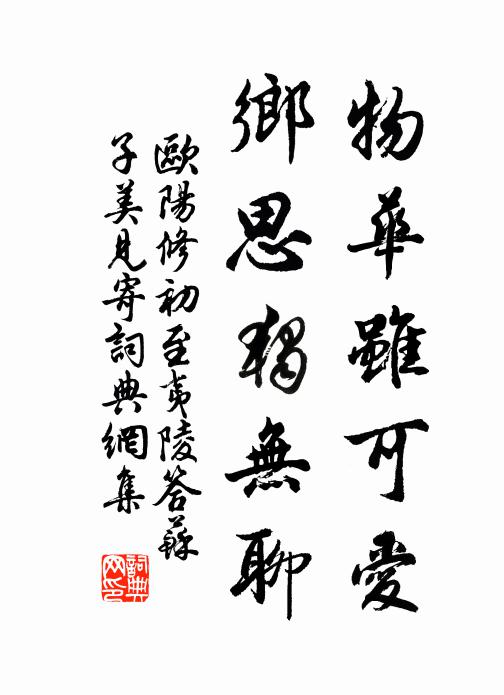 物華雖可愛
鄉思獨無聊
歐陽修初至夷陵答蘇
子美見寄詞典網集
詞典网印